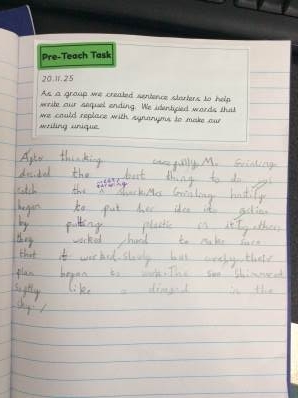 Pre-Teach Task
20.11.25
As a group we created sentence starters to help
write our sequel ending. We identified words that
we could replace with synonyms to make our
writing unique.
After thinking carefully, Mr Grinling
decided the best thing to do
catch the Mrs Grinling hastily
began to put her idea to action
by putting plastic on it. Together,
they worked hard to make sure
that it worked. Slowly but surely their
plan began to work. The sea shimmered
softly like a diamond in the
sky.